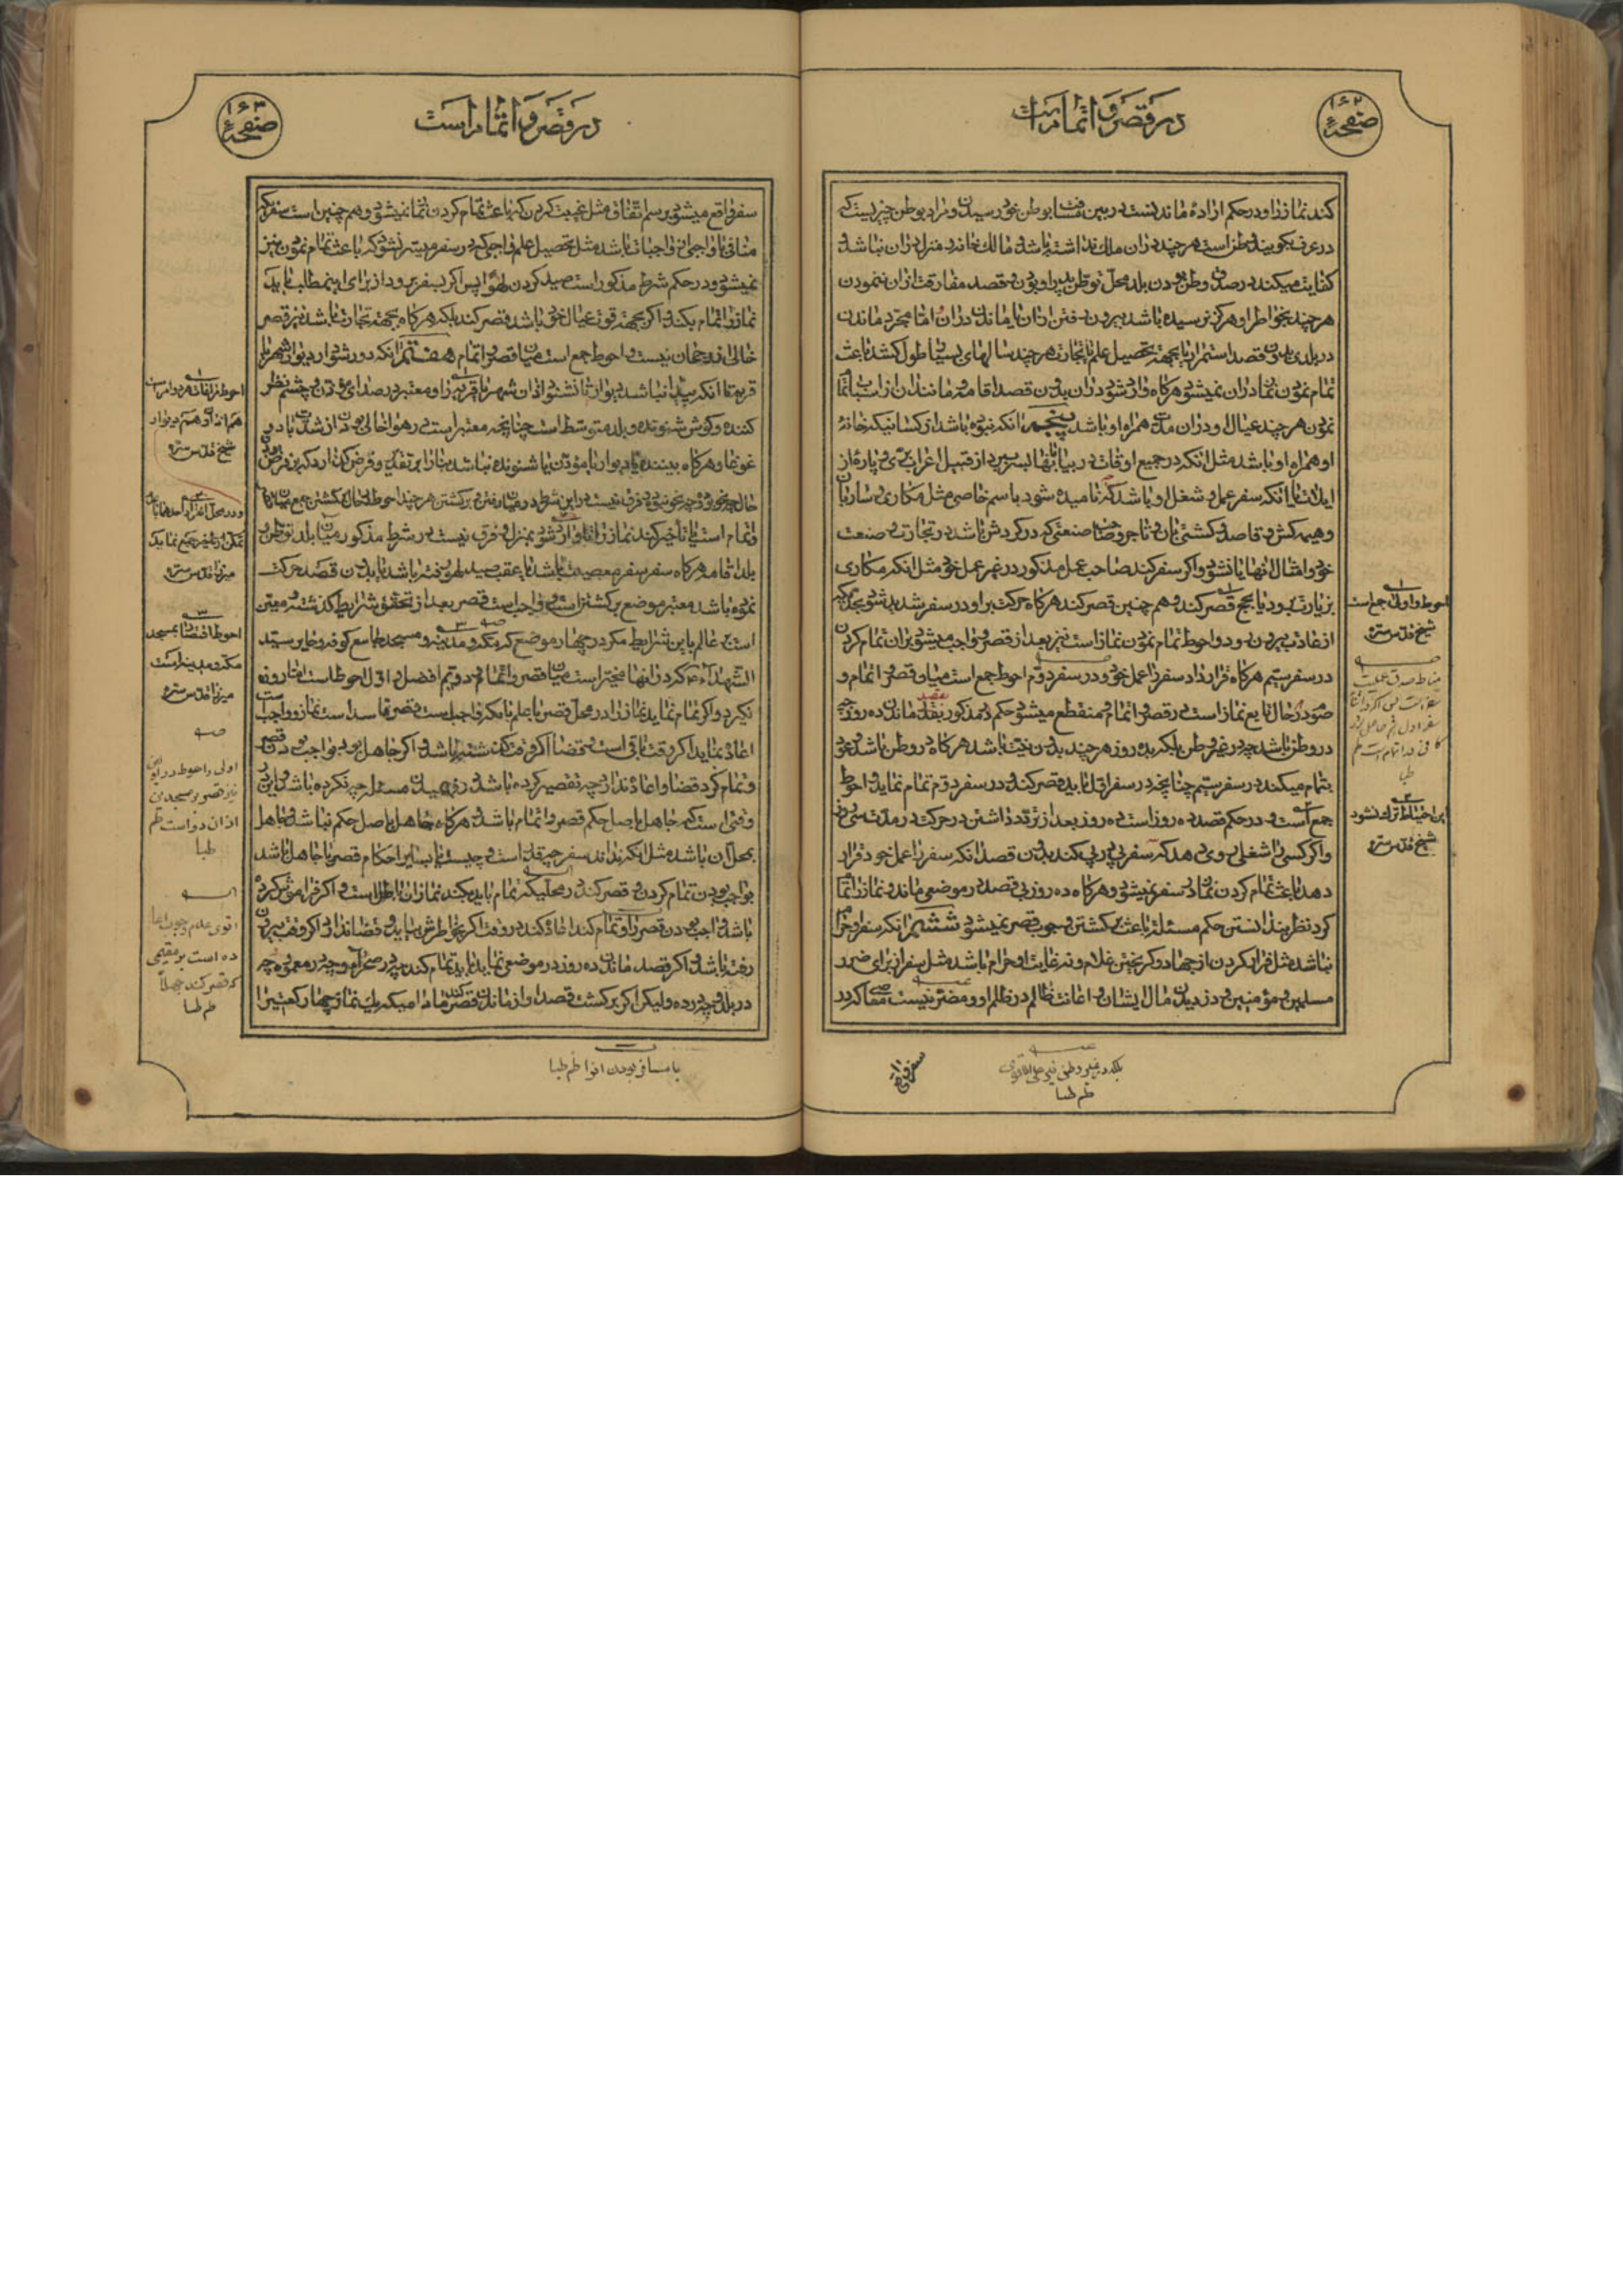 صفحهٔ ۱۶۲
در قصر و اتمام است
کند نماز را و در حکم ارادهٔ ماندنست در بین مسافت بوطن خود رسیدن و مراد بوطن چیزیست که
در عرف بکویند وطن است هر چند در ان ملك نداشته باشد و مالك خانه و منزل در ان نباشد و
کفایت میکند در صدق وطن بودن بلد محل توطن پدر او بودن و قصد مفارقت از ان ننمودن
هر چند بخواطر او هرگز نرسیده باشد بیرون رفتن از ان یا ماندن در ان و اما مجرد ماندن
در بلدی بدون قصد استمرار یا بجهت تحصیل علم یا تجارت هر چند سالهای بسیار طول کشد باعث
تمام نمودن نماز در ان نمیشود هرکاه وارد شود در ان بدون قصد اقامه و ماندن در ان از اسباب اتمام
نمودن هر چند عیال او در ان مدت همراه او باشد پنجم انکه نبوده باشد از کسانیکه خانهٔ
او همراه او باشد مثل انکه در جمیع اوقات در بیابانها بسر برد از قبیل اعراب بدوی و پارهٔ از
ایلات یا انکه سفر عمل و شغل او باشد که نامیده شود باسم خاصی مثل مکاری و ساربان
و هیمه کش و قاصد و کشتی بان و تاجر و صاحب صنعتی که در کردش باشد در تجارت و صنعت
خود و امثال انها یا نشود و اگر سفر کند صاحب عمل مذکور در غیر عمل خود مثل انکه مکاری
بزیارت برود یا بحج قصر کند و هم چنین قصر کند هرکاه حرکت بر او در سفر شدید شود بحدیکه
از عادت بیرون رود و احوط تمام نمودن نماز است نیز بعد از قصر و واجب میشود بر ان تمام کردن
در سفر سیم هرکاه قرار داد سفر را عمل خود و در سفر دوم احوط جمع است میان قصر و اتمام و
صوم در حال تابع نماز است در قصر و اتمام و منقطع میشود حکم مذکور بقصد ماندن ده روز چه
در وطن باشد چه در غیر وطن بلکه بده روز هر چند بدون نیت باشد هرکاه در وطن باشد و عود
بتمام میکند در سفر سیم چنانچه در سفر اول باید قصر کند و در سفر دوم تمام نماید و احوط
جمع است و در حکم قصد ده روز است ده روز بعد از تردد داشتن در حرکت در مدت سی روز
و اگر کسی را شغلی روی دهد که سفر پی در پی کند بدون قصد انکه سفر را عمل خود قرار
دهد باعث تمام کردن نماز در سفر نمیشود و هرکاه ده روز بی قصد در موضعی ماند و نماز را تمام
کرد نظر بندانستن حکم مسئله باعث برکشتن وجوب قصر نمیشود ششم انکه سفر او حرام
نباشد مثل فرار کردن از جهاد و کریختن غلام و نه غایت او حرام باشد مثل سفر از برای ضرر
مسلمین و مؤمنین و دزدیدن مال ایشان و اعانت ظالم در ظلم او و مضر نیست معاصی که در
احوط و اولی جمع است
شیخ قدس سره
مناط صدق عملیت
این احتیاط ترك نشود
شیخ قدس سره
بلکه در غیر وطن نیز علی الاقوی
ظم طبا
سفر واقع
صفحهٔ ۱۶۳
در قصر و اتمام است
سفر واقع میشود بر سم اتفاق مثل غیبت کردن که باعث تمام کردن نماز نمیشود و هم چنین است سفریکه
منافی با واجبی از واجبات باشد مثل تحصیل علم واجبی که در سفر میسر نشود که باعث تمام نمودن نیز
نمیشود و در حکم شرط مذکور است صید کردن لهوا پس اکر بسفر برود از برای این مطالب باید
نماز را تمام بکند و اکر بجهت قوت عیال خود باشد قصر کند بلکه هرکاه بجهت تجارت باشد نیز قصر
خالی از رجحان نیست و احوط جمع است میان قصر و اتمام هفتم انکه دور شود از دیوار شهر یا
قریه تا انکه پیدا نباشد دیوار یا نشنود اذان شهر یا قریه را و معتبر در صدای مؤذن و چشم نظر
کننده و کوش شنونده و بلد متوسط است چنانچه معتبر است در هوا خالی بودن از شدت باد و
غوغا و هرکاه بیننده یا دیوار یا مؤذن یا شنونده نباشد بنا را بر تقدیر و فرض کذارد که بر فرض
بلد اقامه هرکاه سفر سفر معصیت باشد یا عقب صید لهوی رفته باشد یا بدون قصد حرکت
نموده باشد معتبر موضع برکشتن است و واجب است قصر بعد از تحقق شرایط گذشته و معین
است بر عالم باین شرایط مگر در چهار موضع که مکه و مدینه و مسجد جامع کوفه و حایر سید
الشهداء ع که در انها مخیر است میان قصر و اتمام و دویم افضل و اول احوط است اما روزه
نگیرد و اگر تمام نماید نماز را در محل قصر با علم بانکه واجب است قصر فاسد است نماز و واجب است
اعاده نماید اکر وقت باقی است و قضا اکر وقت گذشته باشد و اگر جاهل بود بواجب بودن قصر
و تمام کرد قضا و اعاده ندارد چه تقصیر کرده باشد در فهمیدن مسئله چه نکرده باشد و این در
وقتی است که جاهل باصل حکم قصر و اتمام باشد و هرکاه جاهل باصل حکم نباشد و جاهل
بمحل آن باشد مثل انکه نداند سفر چه قدر است و چیست یا بسایر احکام قصر یا جاهل باشد
بواجب بودن تمام کردن و قصر کند در محلیکه تمام باید بکند نماز ان باطل است و اکر فراموش کرده
باشد واجب بودن قصر را و تمام کند اعاده کند در وقت اکر بخواطرش بیاید و قضا ندارد اکر وقت بیرون
رفته باشد و اکر قصد ماندن ده روز در موضعی نماید باید تمام کند چه در صحرا و چه در معموره چه
در بلد و چه در ده و لیکن اکر برکشت قصد او از ماندن قصر کند مادامیکه یك نماز چهار رکعتی را
احوط مراعات هر دو امر است
هم اذان و هم دیوار
شیخ قدس سره
میرزا قدس سره
احوط اقتصار بمسجد
مکه و مدینه است
میرزا قدس سره
اقوی عدم وجوب اعا
ده است بر مقیمی
که قصر کند جهلاً
ظم طبا
یا مسافر بودن او را ظم طبا